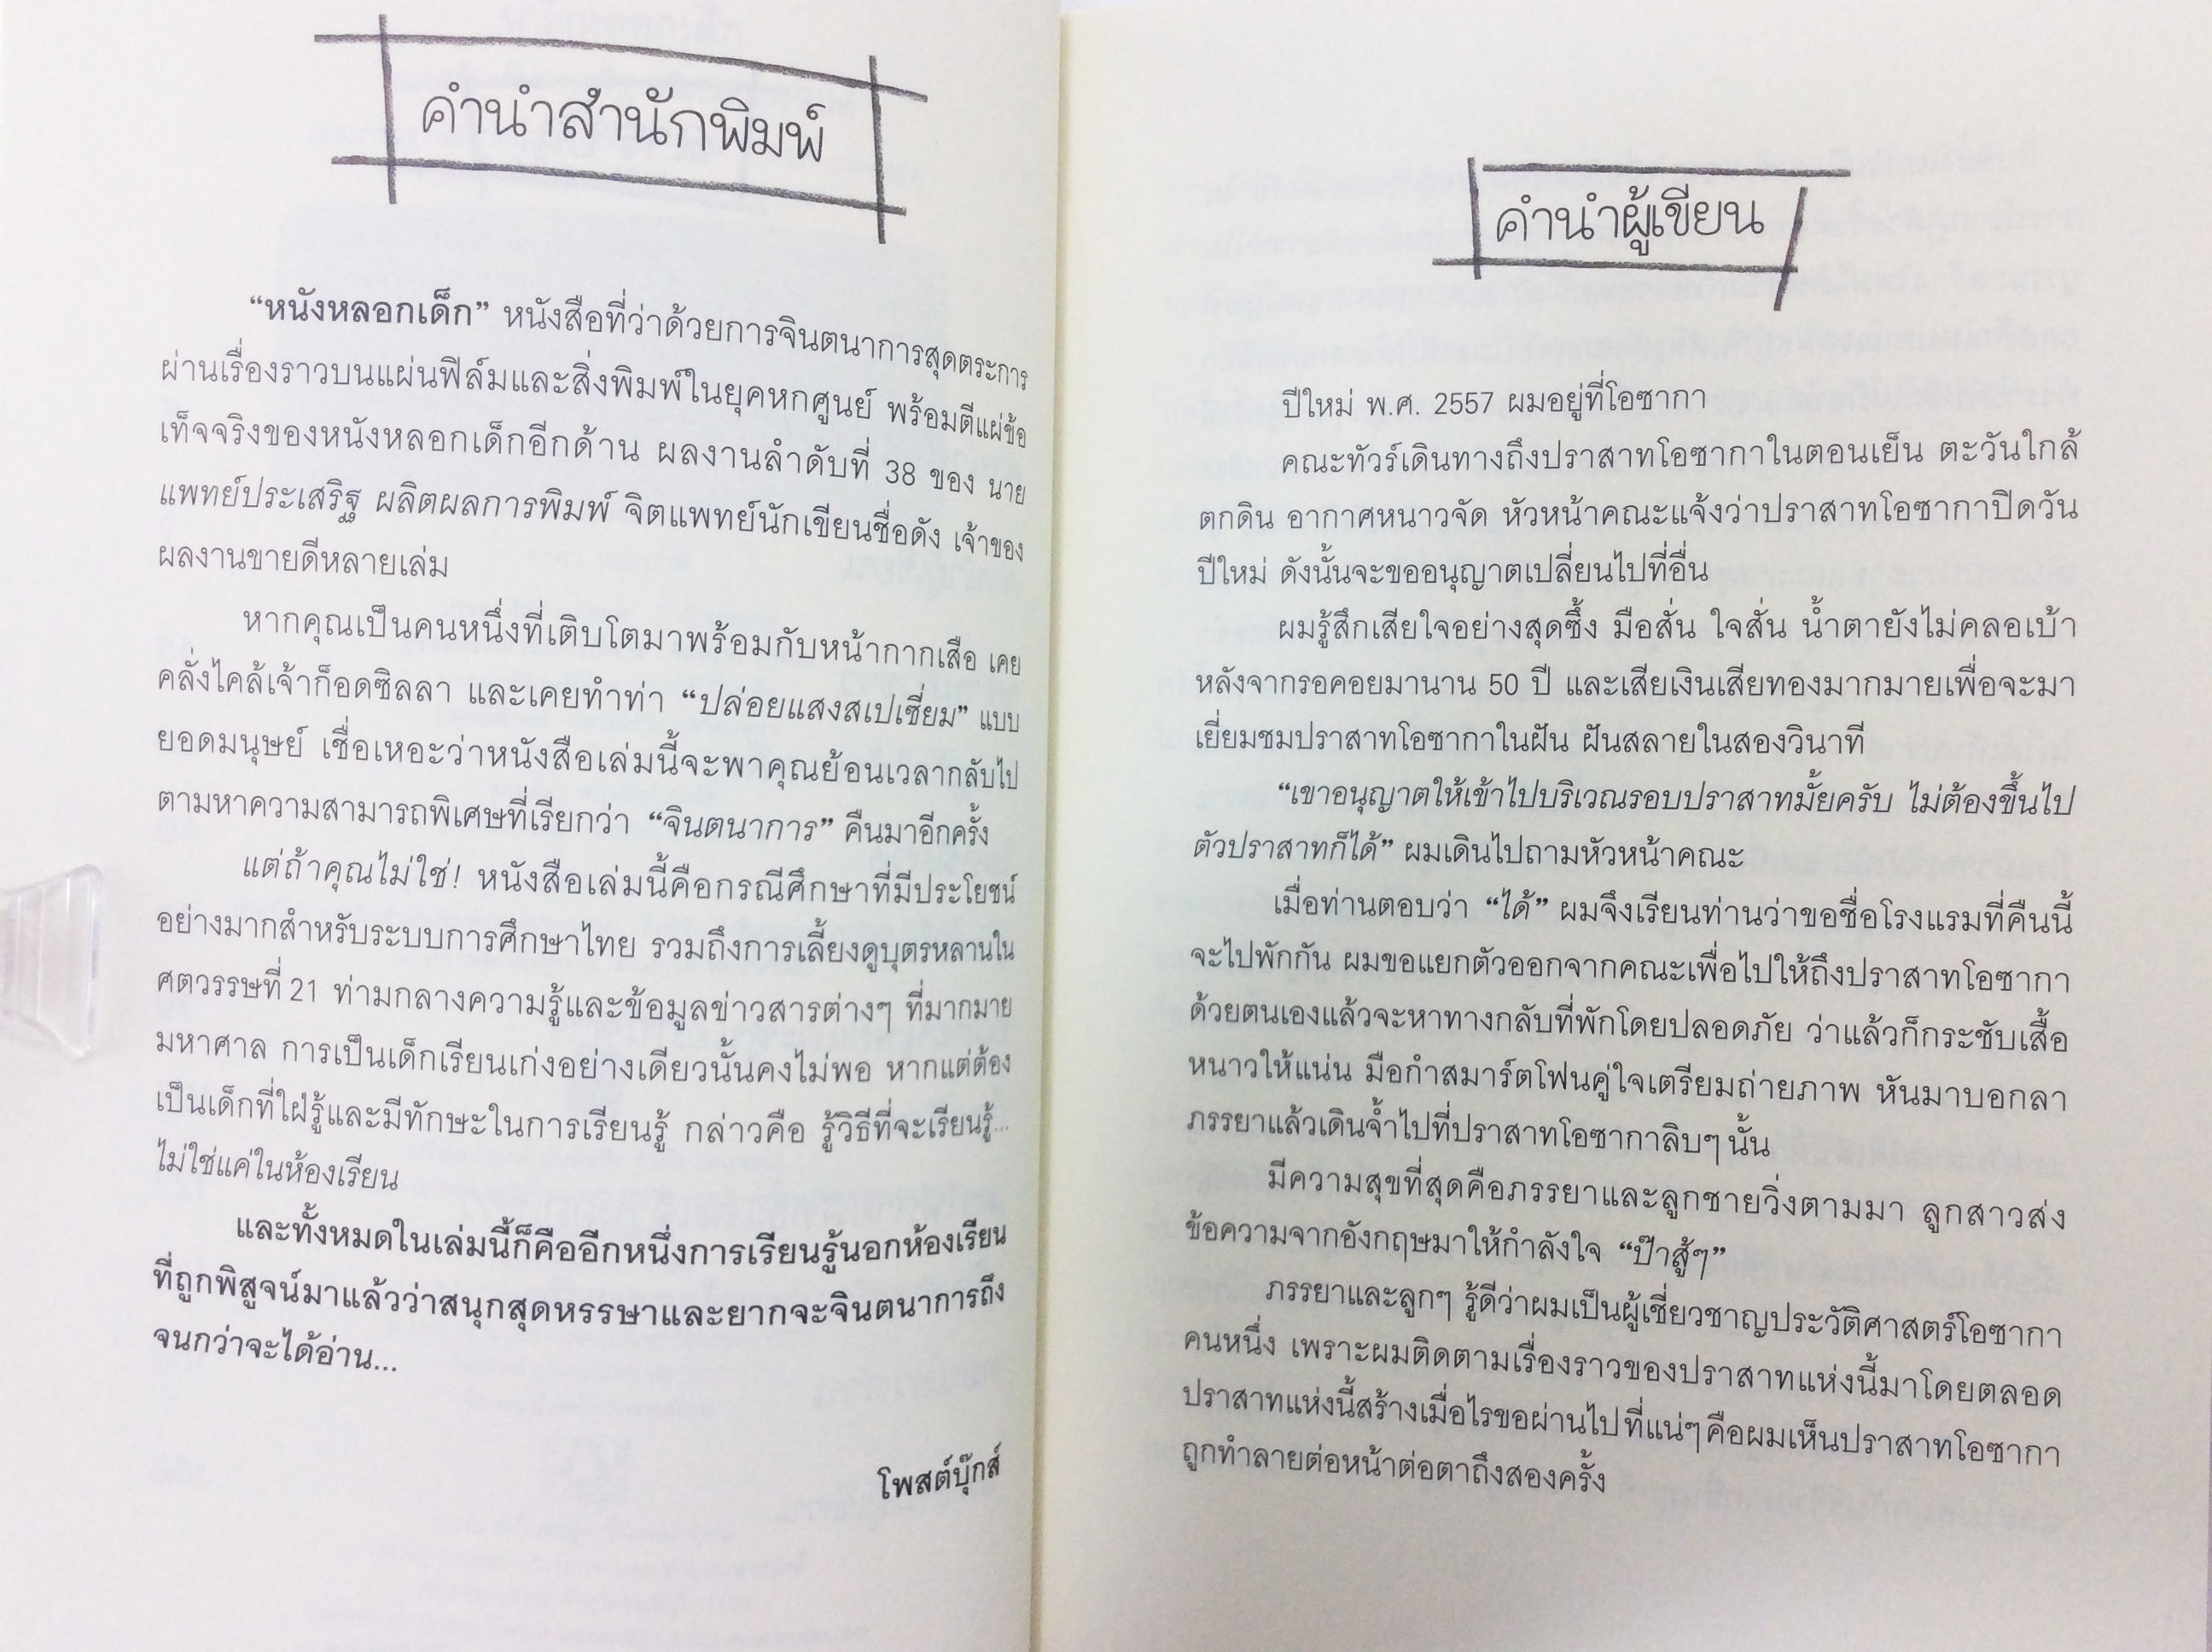 คำนำสำนักพิมพ์
“หนังหลอกเด็ก” หนังสือที่ว่าด้วยการจินตนาการสุดตระการ
ผ่านเรื่องราวบนแผ่นฟิล์มและสิ่งพิมพ์ในยุคหกศูนย์ พร้อมตีแผ่ข้อ
เท็จจริงของหนังหลอกเด็กอีกด้าน ผลงานลำดับที่ 38 ของ นาย
แพทย์ประเสริฐ ผลิตผลการพิมพ์ จิตแพทย์นักเขียนชื่อดัง เจ้าของ
ผลงานขายดีหลายเล่ม
หากคุณเป็นคนหนึ่งที่เติบโตมาพร้อมกับหน้ากากเสือ เคย
คลั่งไคล้เจ้าก็อดซิลลา และเคยทำท่า “ปล่อยแสงสเปเซี่ยม” แบบ
ยอดมนุษย์ เชื่อเหอะว่าหนังสือเล่มนี้จะพาคุณย้อนเวลากลับไป
ตามหาความสามารถพิเศษที่เรียกว่า “จินตนาการ” คืนมาอีกครั้ง
แต่ถ้าคุณไม่ใช่! หนังสือเล่มนี้คือกรณีศึกษาที่มีประโยชน์
อย่างมากสำหรับระบบการศึกษาไทย รวมถึงการเลี้ยงดูบุตรหลานใน
ศตวรรษที่ 21 ท่ามกลางความรู้และข้อมูลข่าวสารต่างๆ ที่มากมาย
มหาศาล การเป็นเด็กเรียนเก่งอย่างเดียวนั้นคงไม่พอ หากแต่ต้อง
เป็นเด็กที่ใฝ่รู้และมีทักษะในการเรียนรู้ กล่าวคือ รู้วิธีที่จะเรียนรู้...
ไม่ใช่แค่ในห้องเรียน
และทั้งหมดในเล่มนี้ก็คืออีกหนึ่งการเรียนรู้นอกห้องเรียน
ที่ถูกพิสูจน์มาแล้วว่าสนุกสุดหรรษาและยากจะจินตนาการถึง
จนกว่าจะได้อ่าน...
โพสต์บุ๊กส์
คำนำผู้เขียน
ปีใหม่ พ.ศ. 2557 ผมอยู่ที่โอซากา
คณะทัวร์เดินทางถึงปราสาทโอซากาในตอนเย็น ตะวันใกล้
ตกดิน อากาศหนาวจัด หัวหน้าคณะแจ้งว่าปราสาทโอซากาปิดวัน
ปีใหม่ ดังนั้นจะขออนุญาตเปลี่ยนไปที่อื่น
ผมรู้สึกเสียใจอย่างสุดซึ้ง มือสั่น ใจสั่น น้ำตายังไม่คลอเบ้า
หลังจากรอคอยมานาน 50 ปี และเสียเงินเสียทองมากมายเพื่อจะมา
เยี่ยมชมปราสาทโอซากาในฝัน ฝันสลายในสองวินาที
“เขาอนุญาตให้เข้าไปบริเวณรอบปราสาทมั้ยครับ ไม่ต้องขึ้นไป
ตัวปราสาทก็ได้” ผมเดินไปถามหัวหน้าคณะ
เมื่อท่านตอบว่า “ได้” ผมจึงเรียนท่านว่าขอชื่อโรงแรมที่คืนนี้
จะไปพักกัน ผมขอแยกตัวออกจากคณะเพื่อไปให้ถึงปราสาทโอซากา
ด้วยตนเองแล้วจะหาทางกลับที่พักโดยปลอดภัย ว่าแล้วก็กระชับเสื้อ
หนาวให้แน่น มือกำสมาร์ตโฟนคู่ใจเตรียมถ่ายภาพ หันมาบอกลา
ภรรยาแล้วเดินจ้ำไปที่ปราสาทโอซากาลิบๆ นั้น
มีความสุขที่สุดคือภรรยาและลูกชายวิ่งตามมา ลูกสาวส่ง
ข้อความจากอังกฤษมาให้กำลังใจ “ป๊าสู้ๆ”
ภรรยาและลูกๆ รู้ดีว่าผมเป็นผู้เชี่ยวชาญประวัติศาสตร์โอซากา
คนหนึ่ง เพราะผมติดตามเรื่องราวของปราสาทแห่งนี้มาโดยตลอด
ปราสาทแห่งนี้สร้างเมื่อไรขอผ่านไป ที่แน่ๆ คือผมเห็นปราสาทโอซากา
ถูกทำลายต่อหน้าต่อตาถึงสองครั้ง